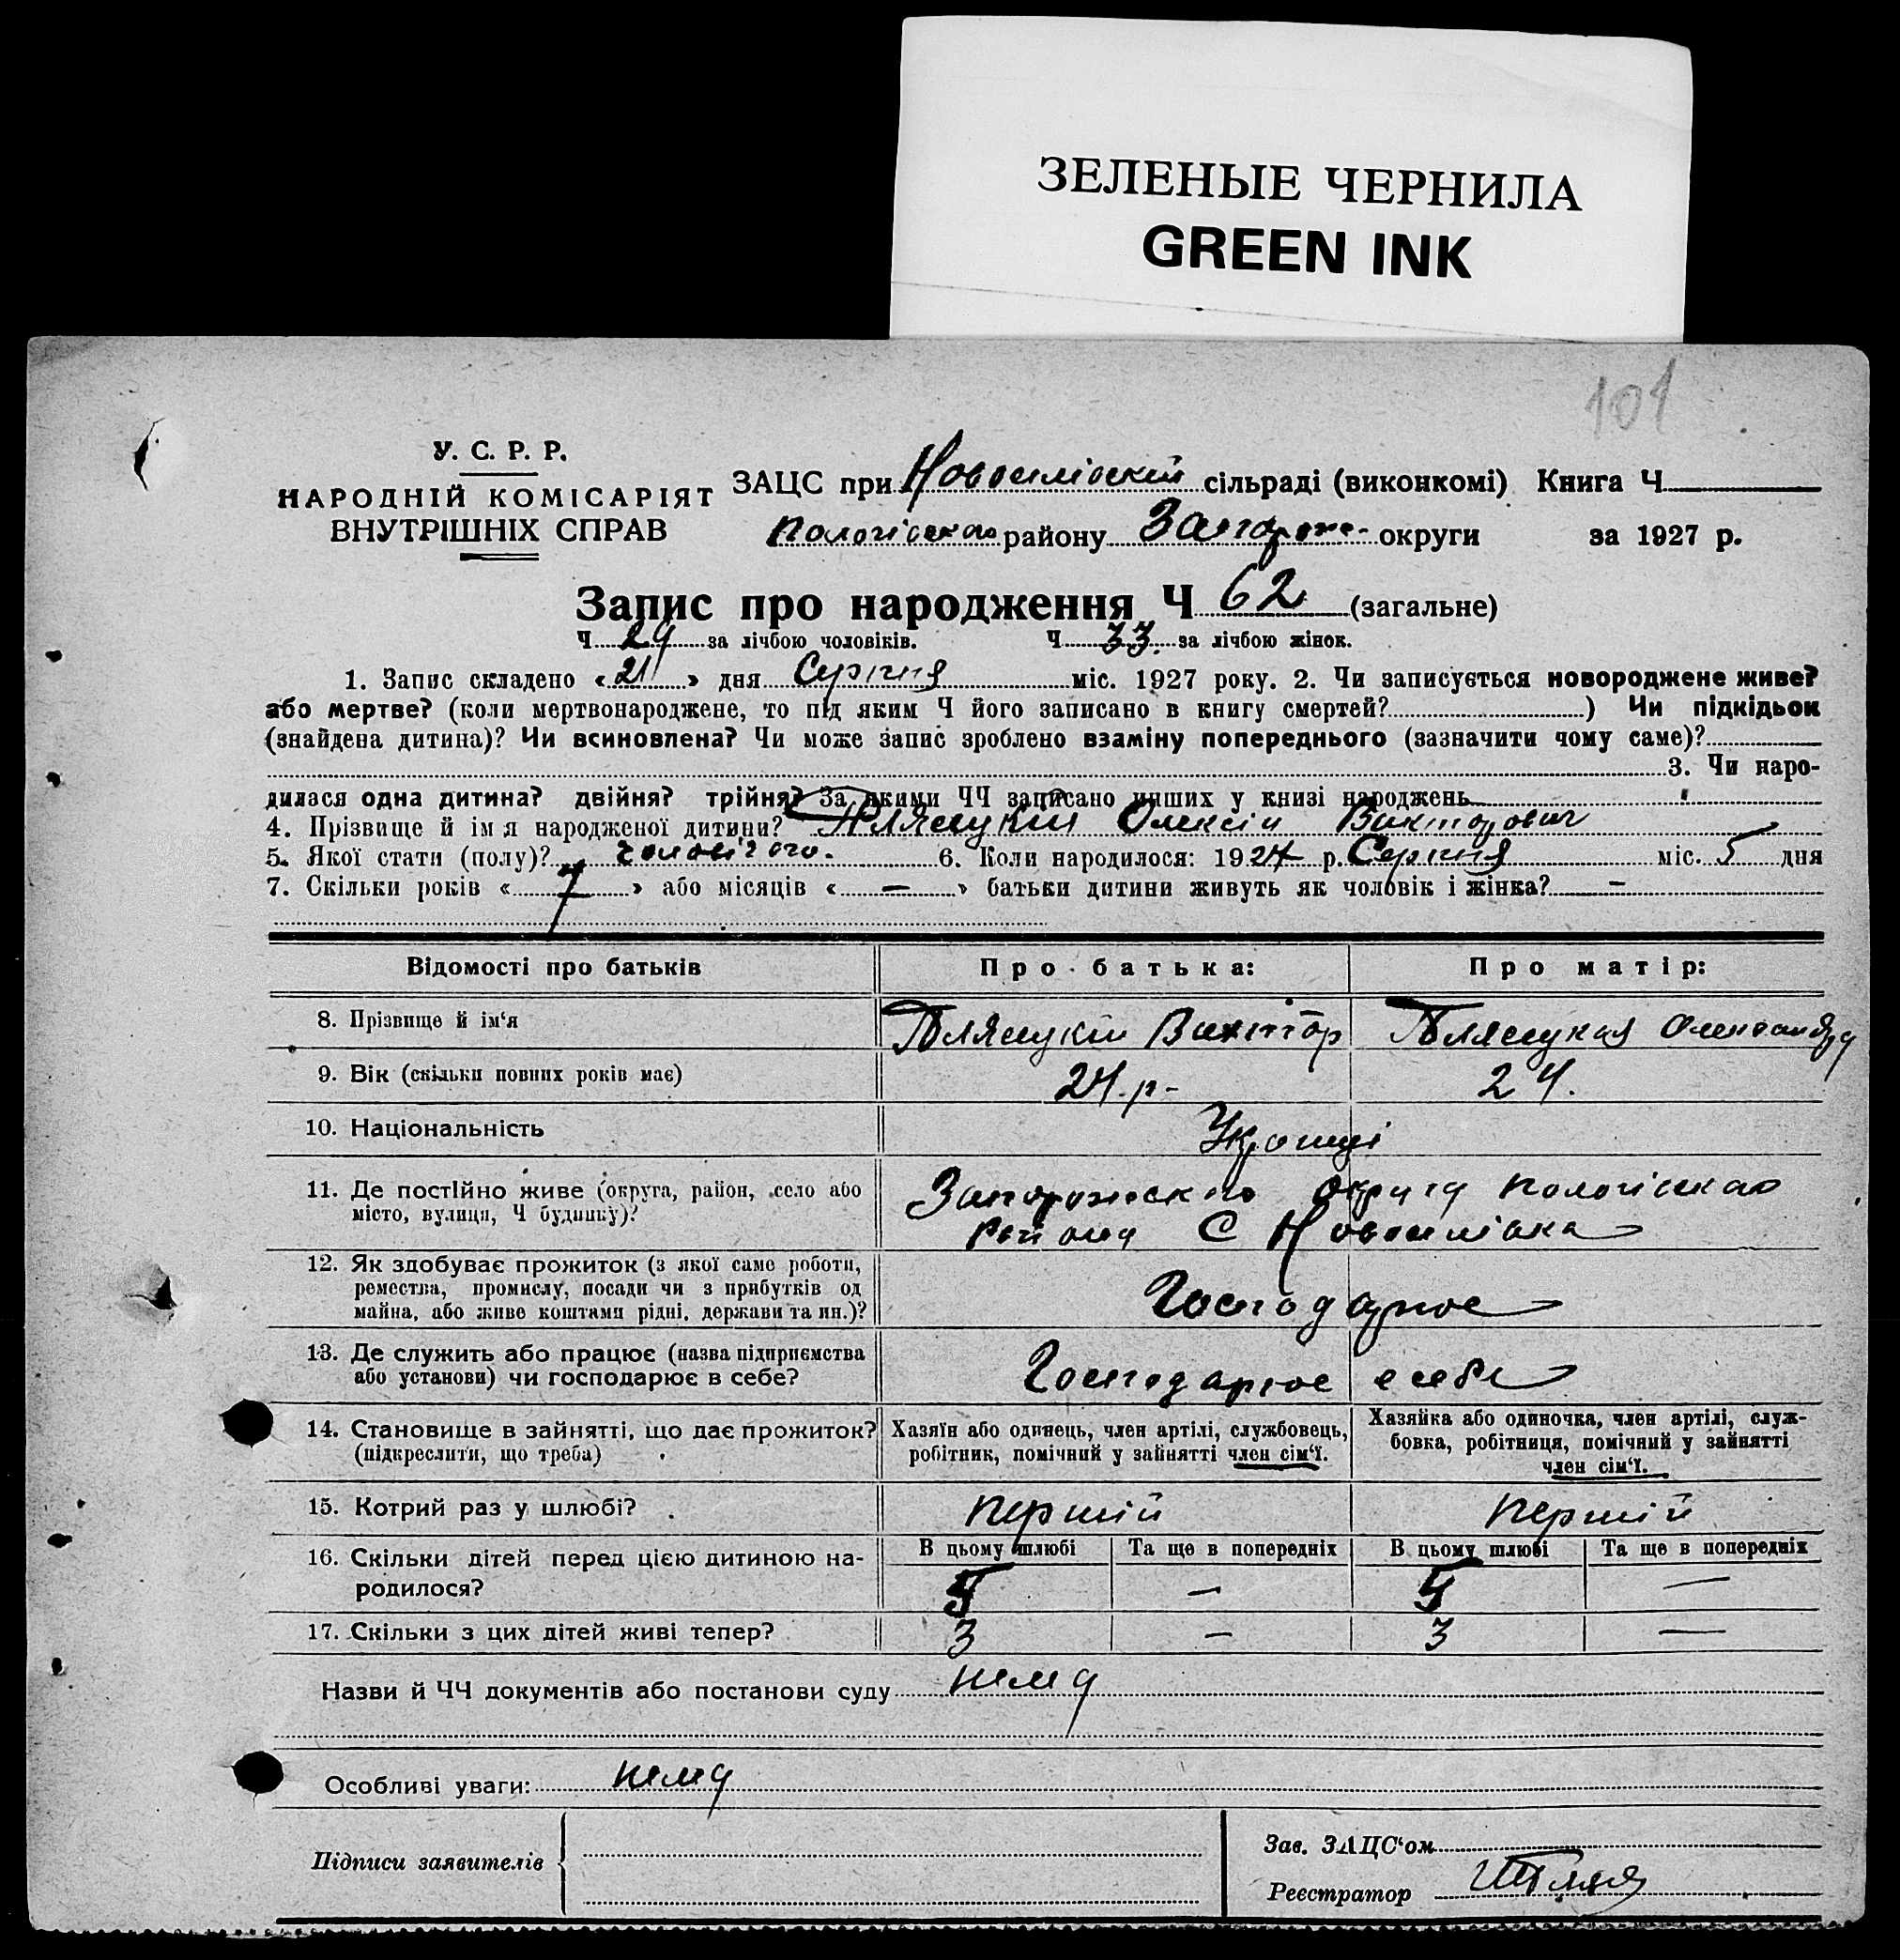 ЗЕЛЕНЫЕ ЧЕРНИЛА
GREEN INK
101
У. С. Р. Р.
НАРОДНІЙ КОМІСАРІЯТ
ВНУТРІШНІХ СПРАВ
ЗАЦС при Новоселівскій сільраді (виконкомі) Книга Ч
Пологівскаго району Запорож- округи за 1927 р.
Запис про народження Ч 62 (загальне)
Ч 29 за лічбою чоловіків. Ч 33. за лічбою жінок.
1. Запис складено « 21 » дня Серпня міс. 1927 року. 2. Чи записується новороджене живе?
або мертве? (коли мертвонароджене, то під яким Ч його записано в книгу смертей? ) Чи підкідьок
(знайдена дитина)? Чи всиновлена? Чи може запис зроблено взаміну попереднього (зазначити чому саме)?
3. Чи наро-
дилася одна дитина? двійня? трійня? За якими ЧЧ записано инших у книзі народжень
4. Прізвище й ім я народженої дитини? Олексій Викторович
5. Якої стати (полу)? 6. Коли народилося: 1927 р. Серпня міс. 5 дня
7. Скільки років « 7 » або місяців « — » батьки дитини живуть як чоловік і жінка? –
Відомості про батьків Про батька: Про матір:
8. Прізвище й ім‘я Виктор Олександра
9. Вік (скільки повних років має) 24.р- 24.
10. Національність Українці
11. Де постійно живе (округа, район, село або
місто, вулиця, Ч будинку)?
округа Пологівскаго
района С Новоселівка
12. Як здобуває прожиток (з якої саме роботи,
ремества, промислу, посади чи з прибутків од
майна, або живе коштами рідні, держави та ин.)?
Господарює
13. Де служить або працює (назва підприємства
або установи) чи господарює в себе?
Господарює в себе
14. Становище в зайнятті, що дає прожиток?
(підкреслити, що треба)
Хазяїн або одинець, член артілі, службовець,
робітник, помічний у зайнятті член сім‘ї.
Хазяйка або одиночка, член артілі, служ-
бовка, робітниця, помічний у зайнятті
член сім‘ї.
15. Котрий раз у шлюбі? першій першій
16. Скільки дітей перед цією дитиною на-
родилося?
В цьому шлюбі Та ще в попередніх В цьому шлюбі Та ще в попередніх
— —
17. Скільки з цих дітей живі тепер? 3 — 3 —
Назви й ЧЧ документів або постанови суду нема
Особливі уваги: нема
Підписи заявителів
Зав. ЗАЦС‘ом
Реєстратор